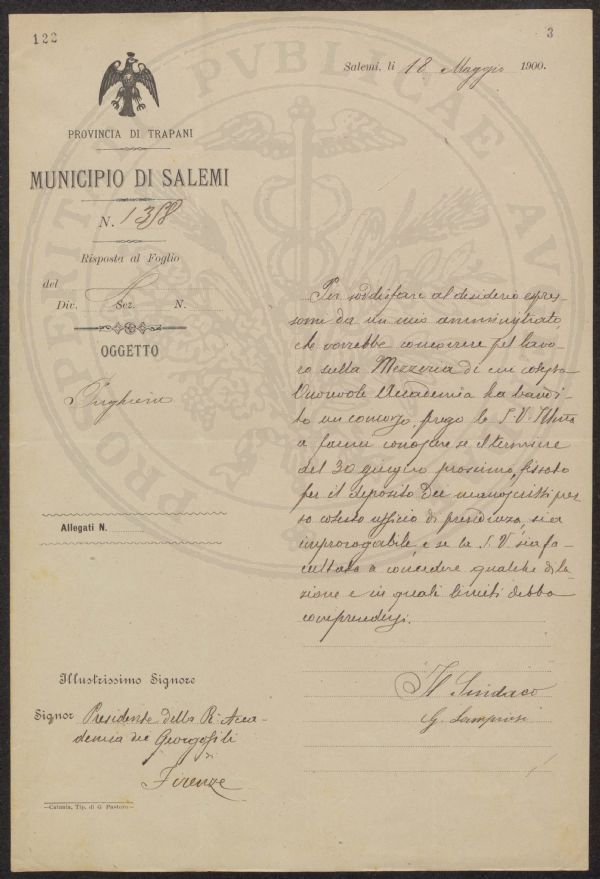 123
3
PRO PROSPERITATE PUBLICAE AU
Salemi, li 18 Maggio 1900.
PROVINCIA DI TRAPANI
MUNICIPIO DI SALEMI
N. 1358
Risposta al Foglio
del
Div. Sez. N.
OGGETTO
Preghiera
Allegati N.
Per soddisfare al desiderio espres-
somi da un mio amministrato
che vorrebbe concorrere pel lavo-
ro sulla Mezzeria di cui cotesta
Onorevole Accademia ha bandi-
to un concorso, prego la S. V. Ill.ma
a farmi conoscere se il termine
del 30 giugno prossimo, fissato
per il deposito dei manoscritti pres-
so cotesto ufficio di presidenza, sia
improrogabile, e se la S. V. sia fa-
cultata a concedere qualche dila-
zione e in quali limiti debba
comprendersi.
Il Sindaco
G.
Illustrissimo Signore
Signor Presidente della R. Acca-
demia dei Georgofili
di
Firenze
—Catania, Tip. di G. Pastore—